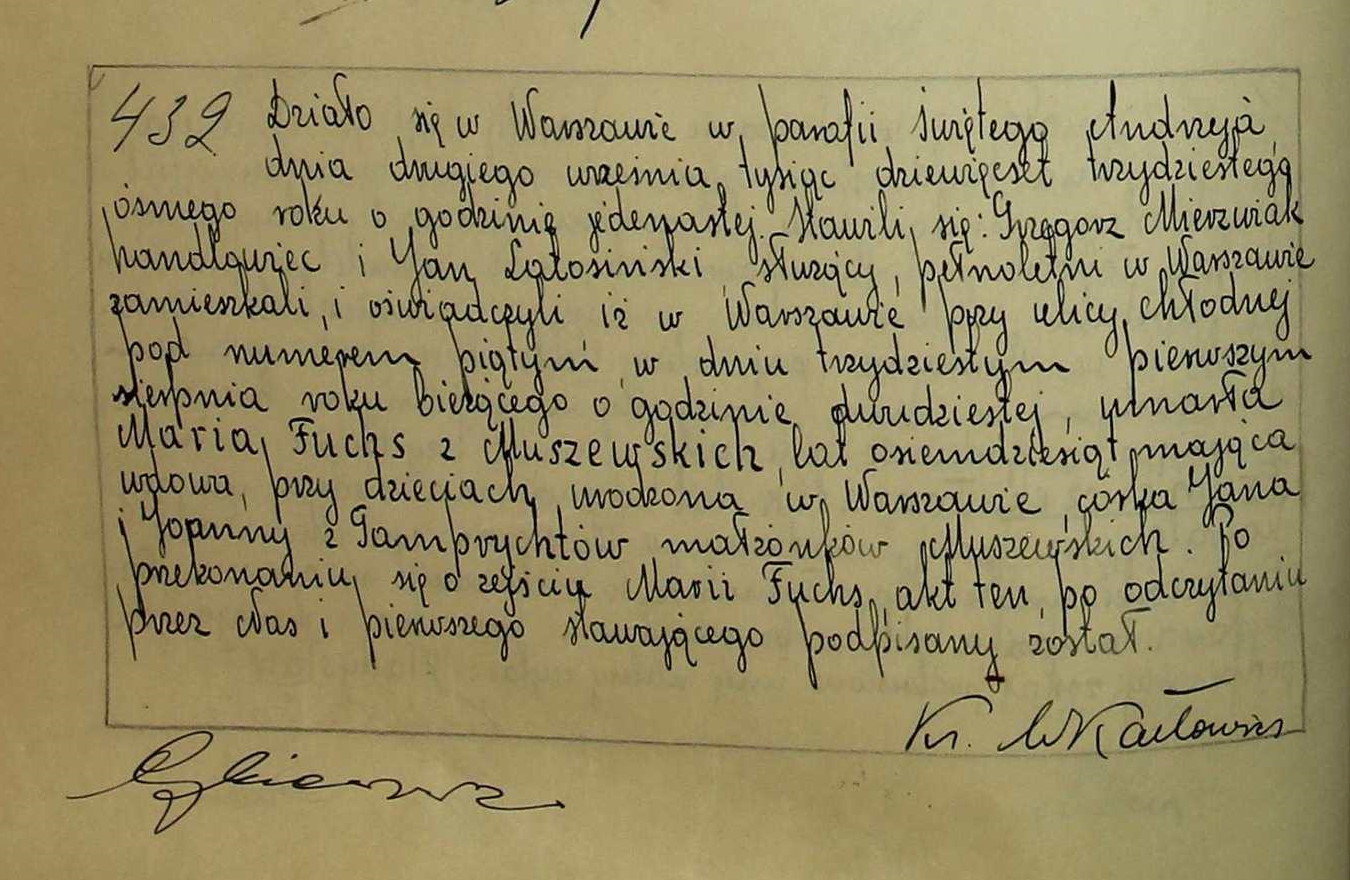 432 Działo się w Warszawie w parafii świętego Andrzeja
dnia drugiego września tysiąc dziewięćset trzydziestego
ósmego roku o godzinie jedenastej. Stawili się: Grzegorz Mierzwiak
handlowiec i Jan Latosiński służący, pełnoletni w Warszawie
zamieszkali, i oświadczyli iż w Warszawie przy ulicy Chłodnej
pod numerem piątym w dniu trzydziestym pierwszym
sierpnia roku bieżącego o godzinie dwudziestej, umarła
Maria Fuchs z Muszewskich, lat osiemdziesiąt mająca
wdowa, przy dzieciach, urodzona w Warszawie, córka Jana
i Joanny z Gamprychtów małżonków Muszewskich. Po
przekonaniu się o zejściu Marii Fuchs, akt ten, po odczytaniu
przez Nas i pierwszego stawającego podpisany został.